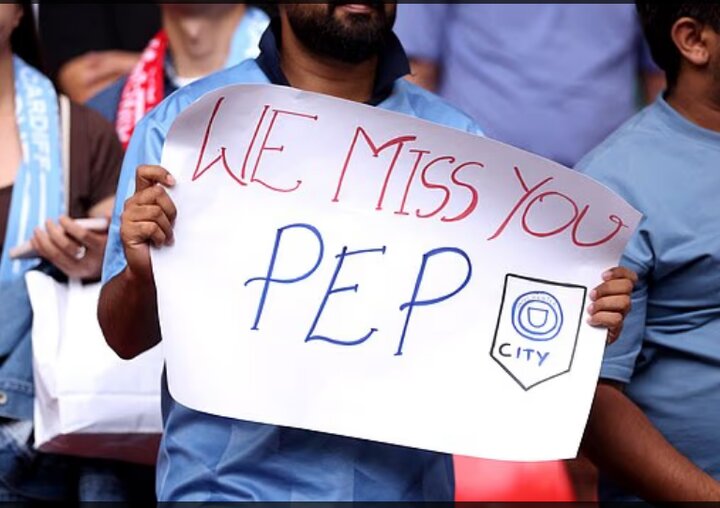 WE MISS YOU
PEP
CITY
CARDIFF